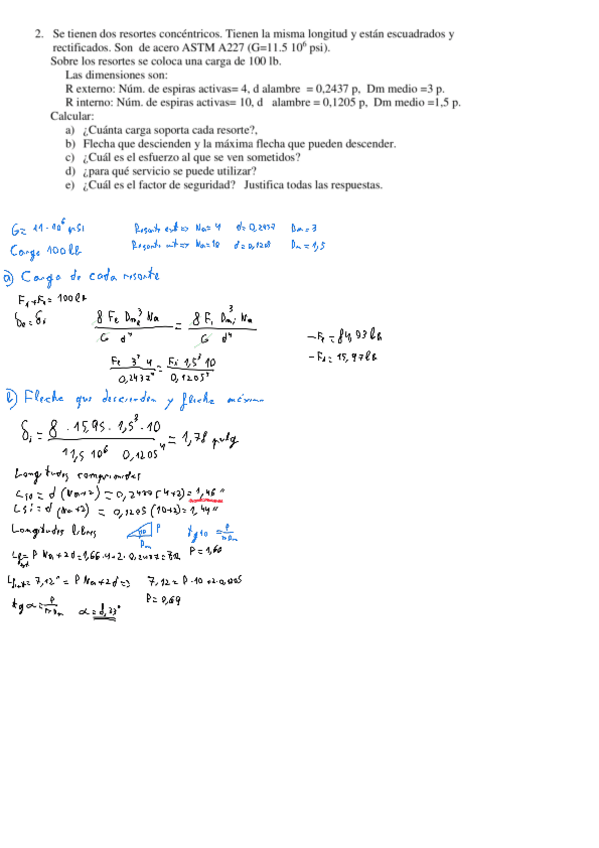 2. Se tienen dos resortes concéntricos. Tienen la misma longitud y están escuadrados y
rectificados. Son de acero ASTM A227 (G=11.5 10⁶ psi).
Sobre los resortes se coloca una carga de 100 lb.
Las dimensiones son:
R externo: Núm. de espiras activas= 4, d alambre = 0,2437 p, Dm medio =3 p.
R interno: Núm. de espiras activas= 10, d alambre = 0,1205 p, Dm medio =1,5 p.
Calcular:
a) ¿Cuánta carga soporta cada resorte?,
b) Flecha que descienden y la máxima flecha que pueden descender.
c) ¿Cuál es el esfuerzo al que se ven sometidos?
d) ¿para qué servicio se puede utilizar?
e) ¿Cuál es el factor de seguridad? Justifica todas las respuestas.
G= 11·10⁶ psi Resorte ext => Na= 4 d= 0,2437 Dm= 3
Carga 100 lb Resorte int => Na=10 d= 0,1205 Dm= 1,5
a) Carga de cada resorte
= 100 lb
8 Fe Dm³ Na / G d⁴ = 8 Fi Dm³ Na / G d⁴
Fe 3³ 4 / 0,2437⁴ = Fi 1,5³ 10 / 0,1205⁴
= 84,03 lb
= 15,97 lb
b) Flecha que descienden y flecha máxima
δi = 8 · 15,95 · 1,5³ · 10 / 11,5 10⁶ 0,1205⁴ = 1,78 pulg
Longitudes comprimidas
= d (Na+2) = (4+2) = 1,46"
Lsi = d (Na+2) = 0,1205 (10+2) = 1,44"
Longitudes libres P Dm tg 10 =
= P Na + 2d = 1,66 · 4 + 2 · 0,2437 = P = 1,66
= 7,12" = P Na + 2d => 7,12 = P · 10 +
P = 0,69
tg α = α =